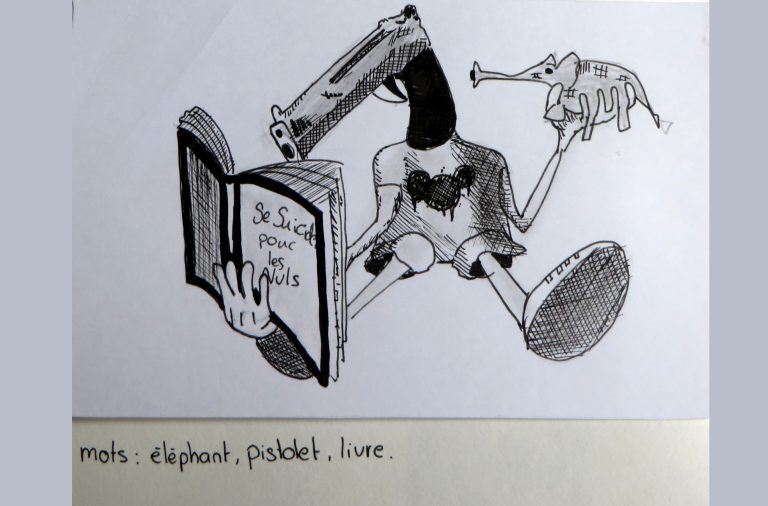 Se Suicder
pour
les
Nuls
mots : éléphant, pistolet, livre.